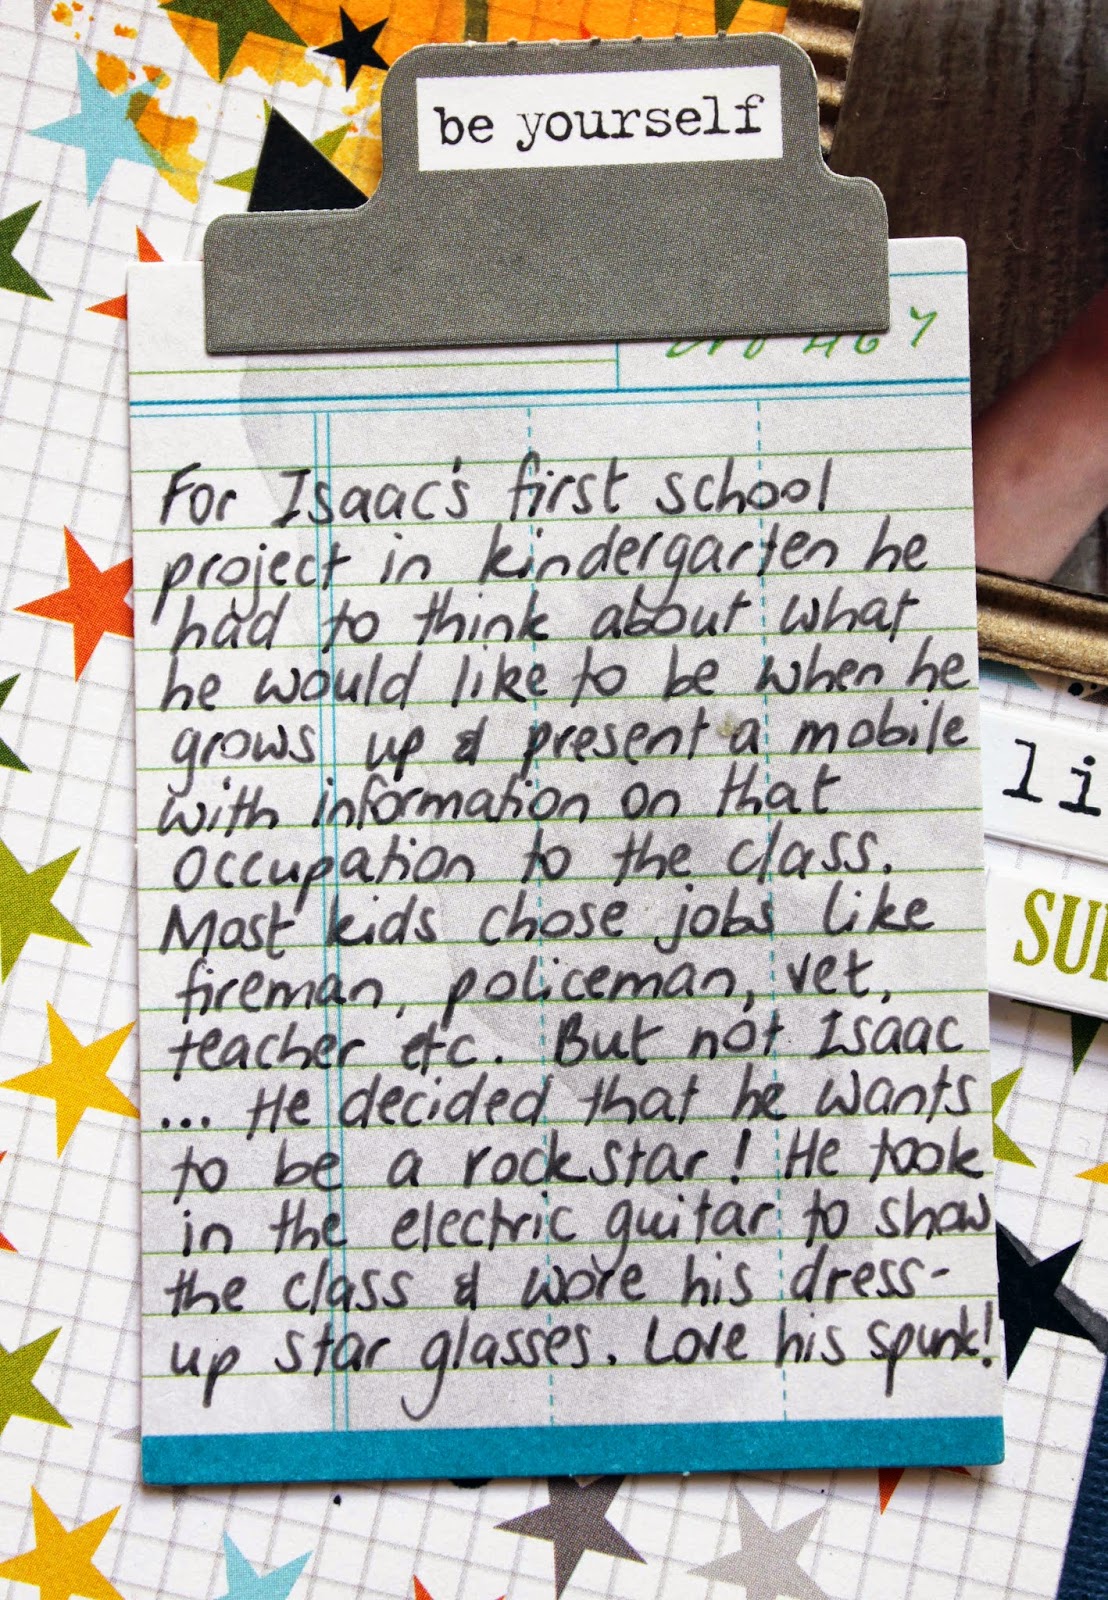 be yourself
467
For Isaac's first school
project in kindergarten he
had to think about what
he would like to be when he
grows up & present a mobile
with information on that
occupation to the class.
Most kids chose jobs like
fireman, policeman, vet,
teacher etc. But not Isaac
... He decided that he wants
to be a rockstar! He took
in the electric guitar to show
the class & wore his dress-
up star glasses. Love his spunk!
li
SU